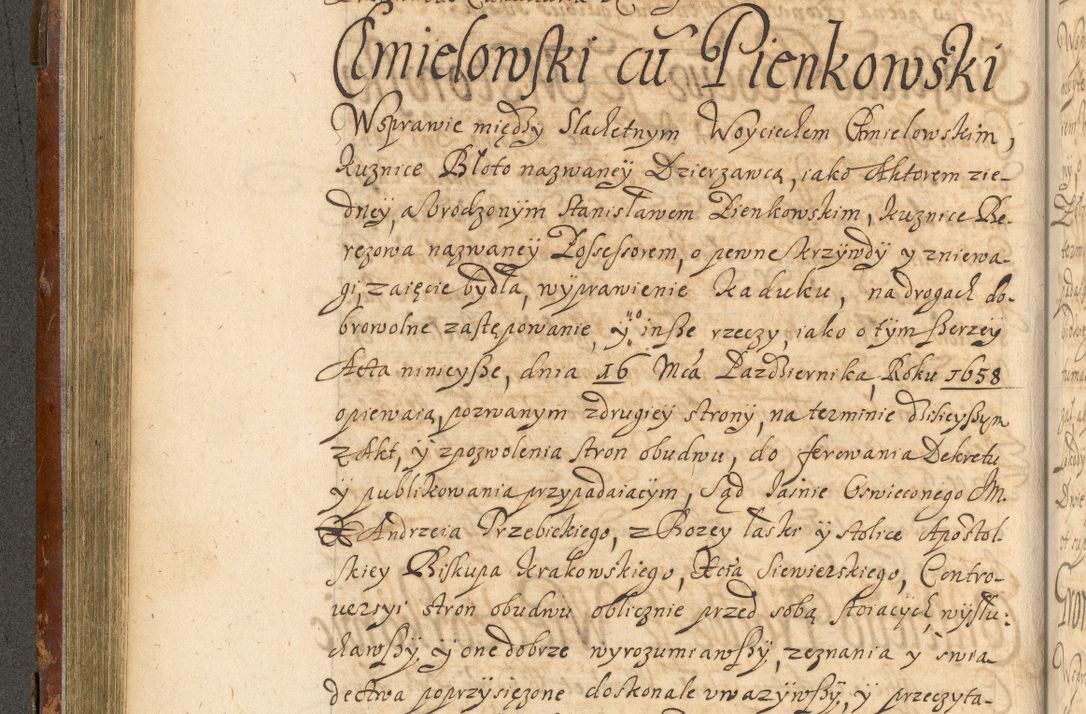 Chmielowski cũ Pienkowski
Wsprawie między Slachetnym Woyciechem Chmielowskim,
kuznice Błoto nazwaneÿ Dzierzawcą, iako Aktorem zie-
dneÿ, a Vrodzonÿm Stanisławem Pienkowskim, kuznice Be-
rezowa nazwaneÿ Possessorem, o pewne krzÿwdÿ y zniewa-
gi, zaięcie bydła, wÿprawienie kaduku, na drogach do-
browolne zastępowanie, ÿ inße rzeczy, iako o tÿm ßerzeÿ
Acta ninieyße, dnia 16 Mcá Pazdziernika, Roku 1658
opiewaią, pozwanym zdrugieÿ strony, na terminie dzisieyßym
z Akt, ÿ zpozwolenia stron obudwu, do ferowania Dekretu
ÿ publikowania przÿpadaiącÿm, Sąd Iasnie Oswieconego Im.
X Andrzeia Przebickiego, z Bozey łaski ÿ stolice Apostol
skiey Biskupa Krakowskiego, Xcia Siewierskiego, Contro-
versyi stron obudwu oblicznie przed sobą stoiącÿch wÿsłu:
chawßÿ, ÿ one dobrze wyrozumiawßÿ, zeznania y swia-
dectwa poprzÿsięzone doskonale vwazÿwßÿ, ÿ przeczyta-